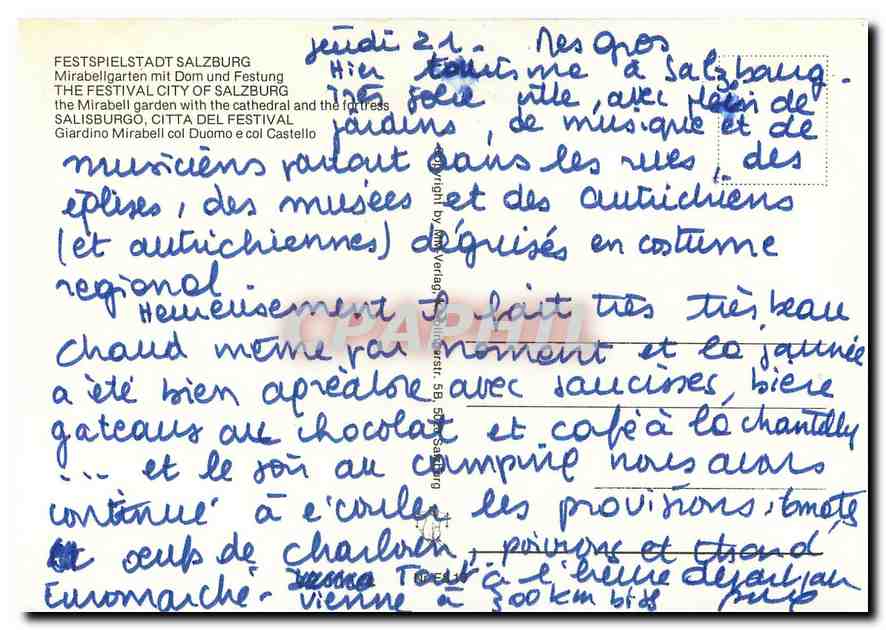 FESTSPIELSTADT SALZBURG
Mirabellgarten mit Dom und Festung
THE FESTIVAL CITY OF SALZBURG
the Mirabell garden with the cathedral and the fortress
SALISBURGO, CITTA DEL FESTIVAL
Giardino Mirabell col Duomo e col Castello
jeudi 21. Mes gros
Hier tourisme à Salzbourg.
Très jolie ville, avec plein de
jardins, de musique et de
musiciens partout dans les rues, des
églises, des musées et des autrichiens
(et autrichiennes) déguisés en costume
regional
Heureusement il fait très très beau
chaud même par moment et la journée
a été bien agréable avec saucisses, bière
gateaux au chocolat et café à la chantilly
... et le soir au camping nous avons
continué à écouler les provisions, tomate
et oeufs de
Euromarché. Tout à l'heure départ
vienne à 300 km
CPAPHIL
Copyright by